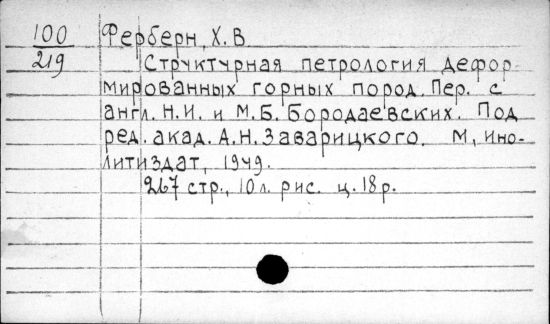 100
219
Ферберн, Х. В
Структурная петрология дефор-
мированных горных пород. Пер. с
англ. Н. И. и М. Б. Бородаевских. Под
ред. акад. А. Н. Заварицкого. М, Ино-
литиздат, 1949.
267 стр., 10 л. рис. ц. 18 р.